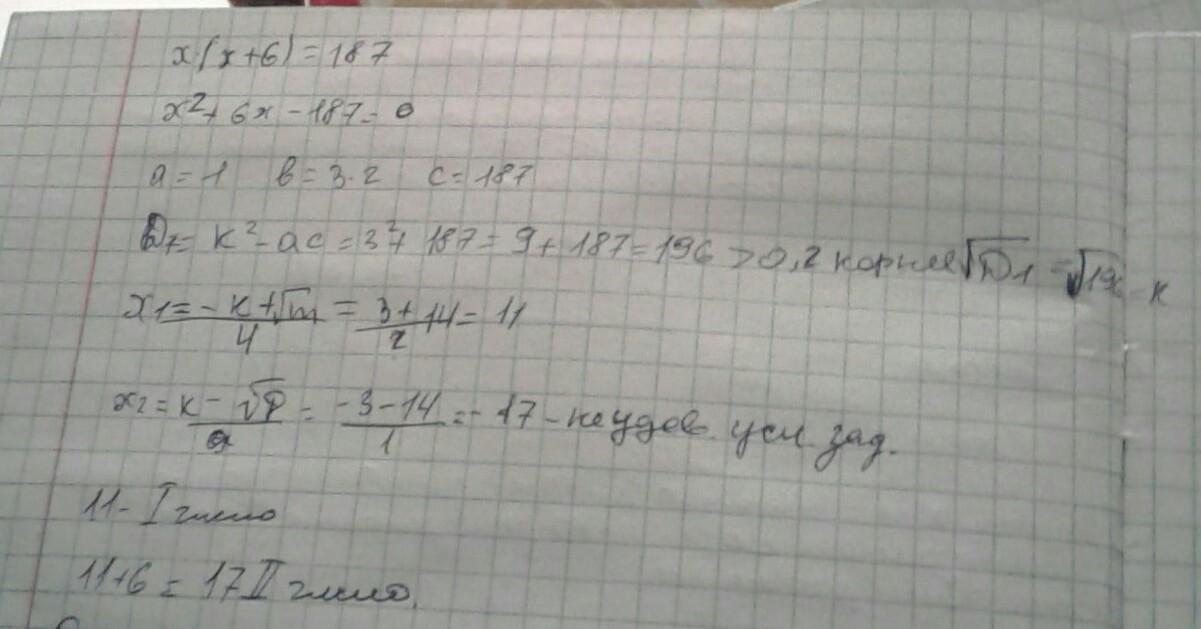 x(x+6)=187
x²+6x-187=0
a=1 b=3·2 c=187
D₁=k²-ac=3²+187=9+187=196>0, 2 корня √D1 =√196
x1=-k+√m/4=3+14/2=11
x2=k-√D/a=-3-14/1=-17-не удов. усл. зад.
11-I число
11+6=17 II число.